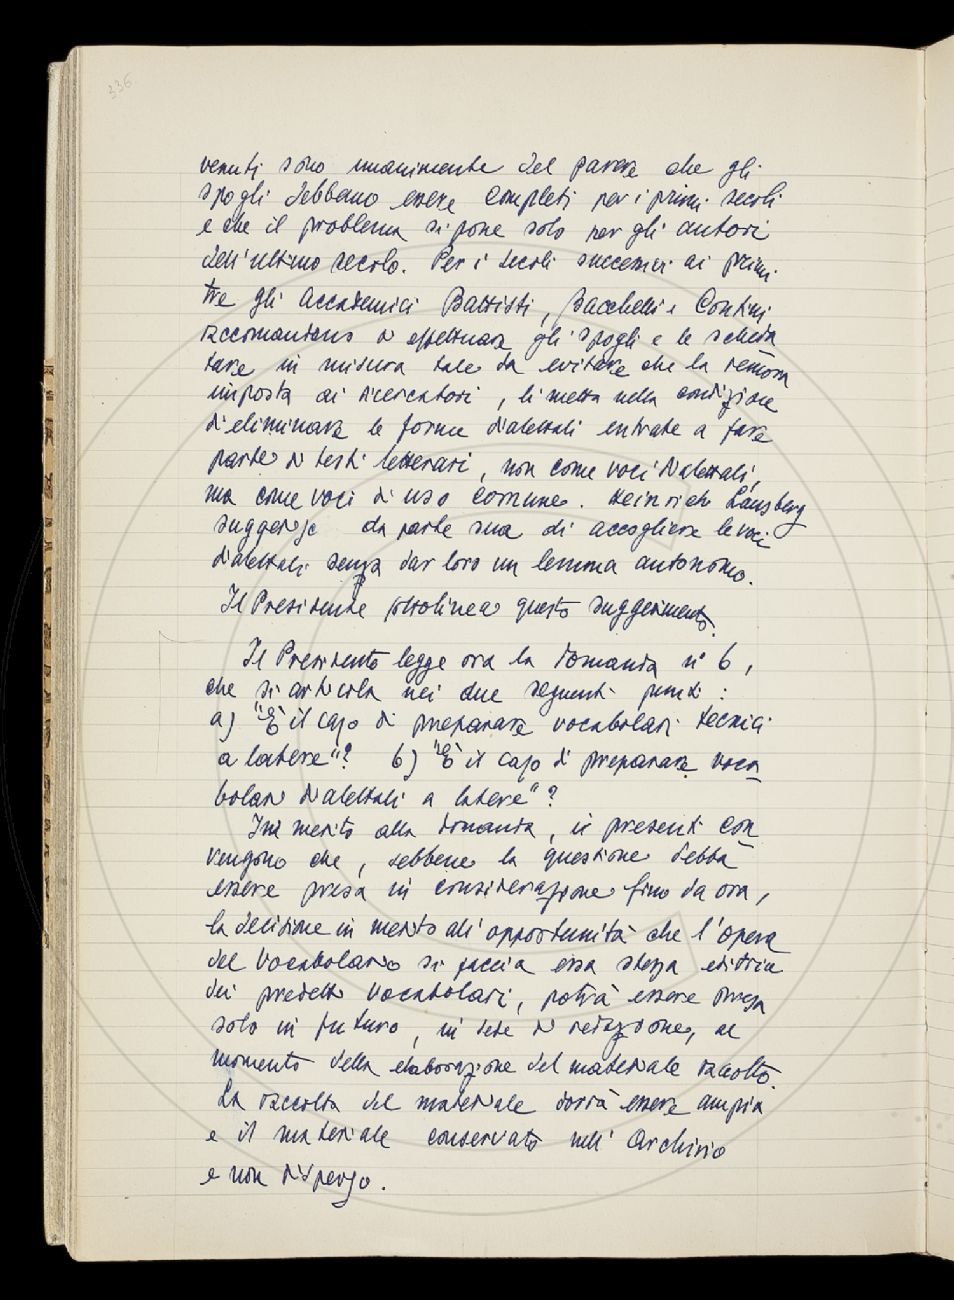 336
venuti sono unanimente del parere che gli
spogli debbano essere completi per i primi secoli
e che il problema si pone solo per gli autori
dell'ultimo secolo. Per i secoli successivi ai primi
tre gli Accademici Battisti, Bacchelli e Contini
raccomandano di effettuare gli spogli e le scheda
ture in misura tale da evitare che la remora
imposta ai ricercatori, li metta nella condizione
di eliminare le forme dialettali entrate a fare
parte di testi letterari, non come voci dialettali,
ma come voci di uso comune. Heinrich Lausberg
suggerisce da parte sua di accogliere le voci
dialettali senza dar loro un lemma autonomo.
Il Presidente sottolinea questo suggerimento.
Il Presidente legge ora la domanda n° 6,
che si articola nei due seguenti punti:
a) "È il caso di preparare vocabolari tecnici
a latere"? b) "È il caso di preparare voca
bolari dialettali a latere"?
In merito alla domanda, i presenti con
vengono che, sebbene la questione debba
essere presa in considerazione fino da ora,
la decisione in merito all'opportunità che l'Opera
del Vocabolario si faccia essa stessa editrice
dei predetti vocabolari, potrà essere presa
solo in futuro, in sede di redazione, al
momento della elaborazione del materiale raccolto.
La raccolta del materiale dovrà essere ampia
e il materiale conservato nell'Archivio
e non disperso.